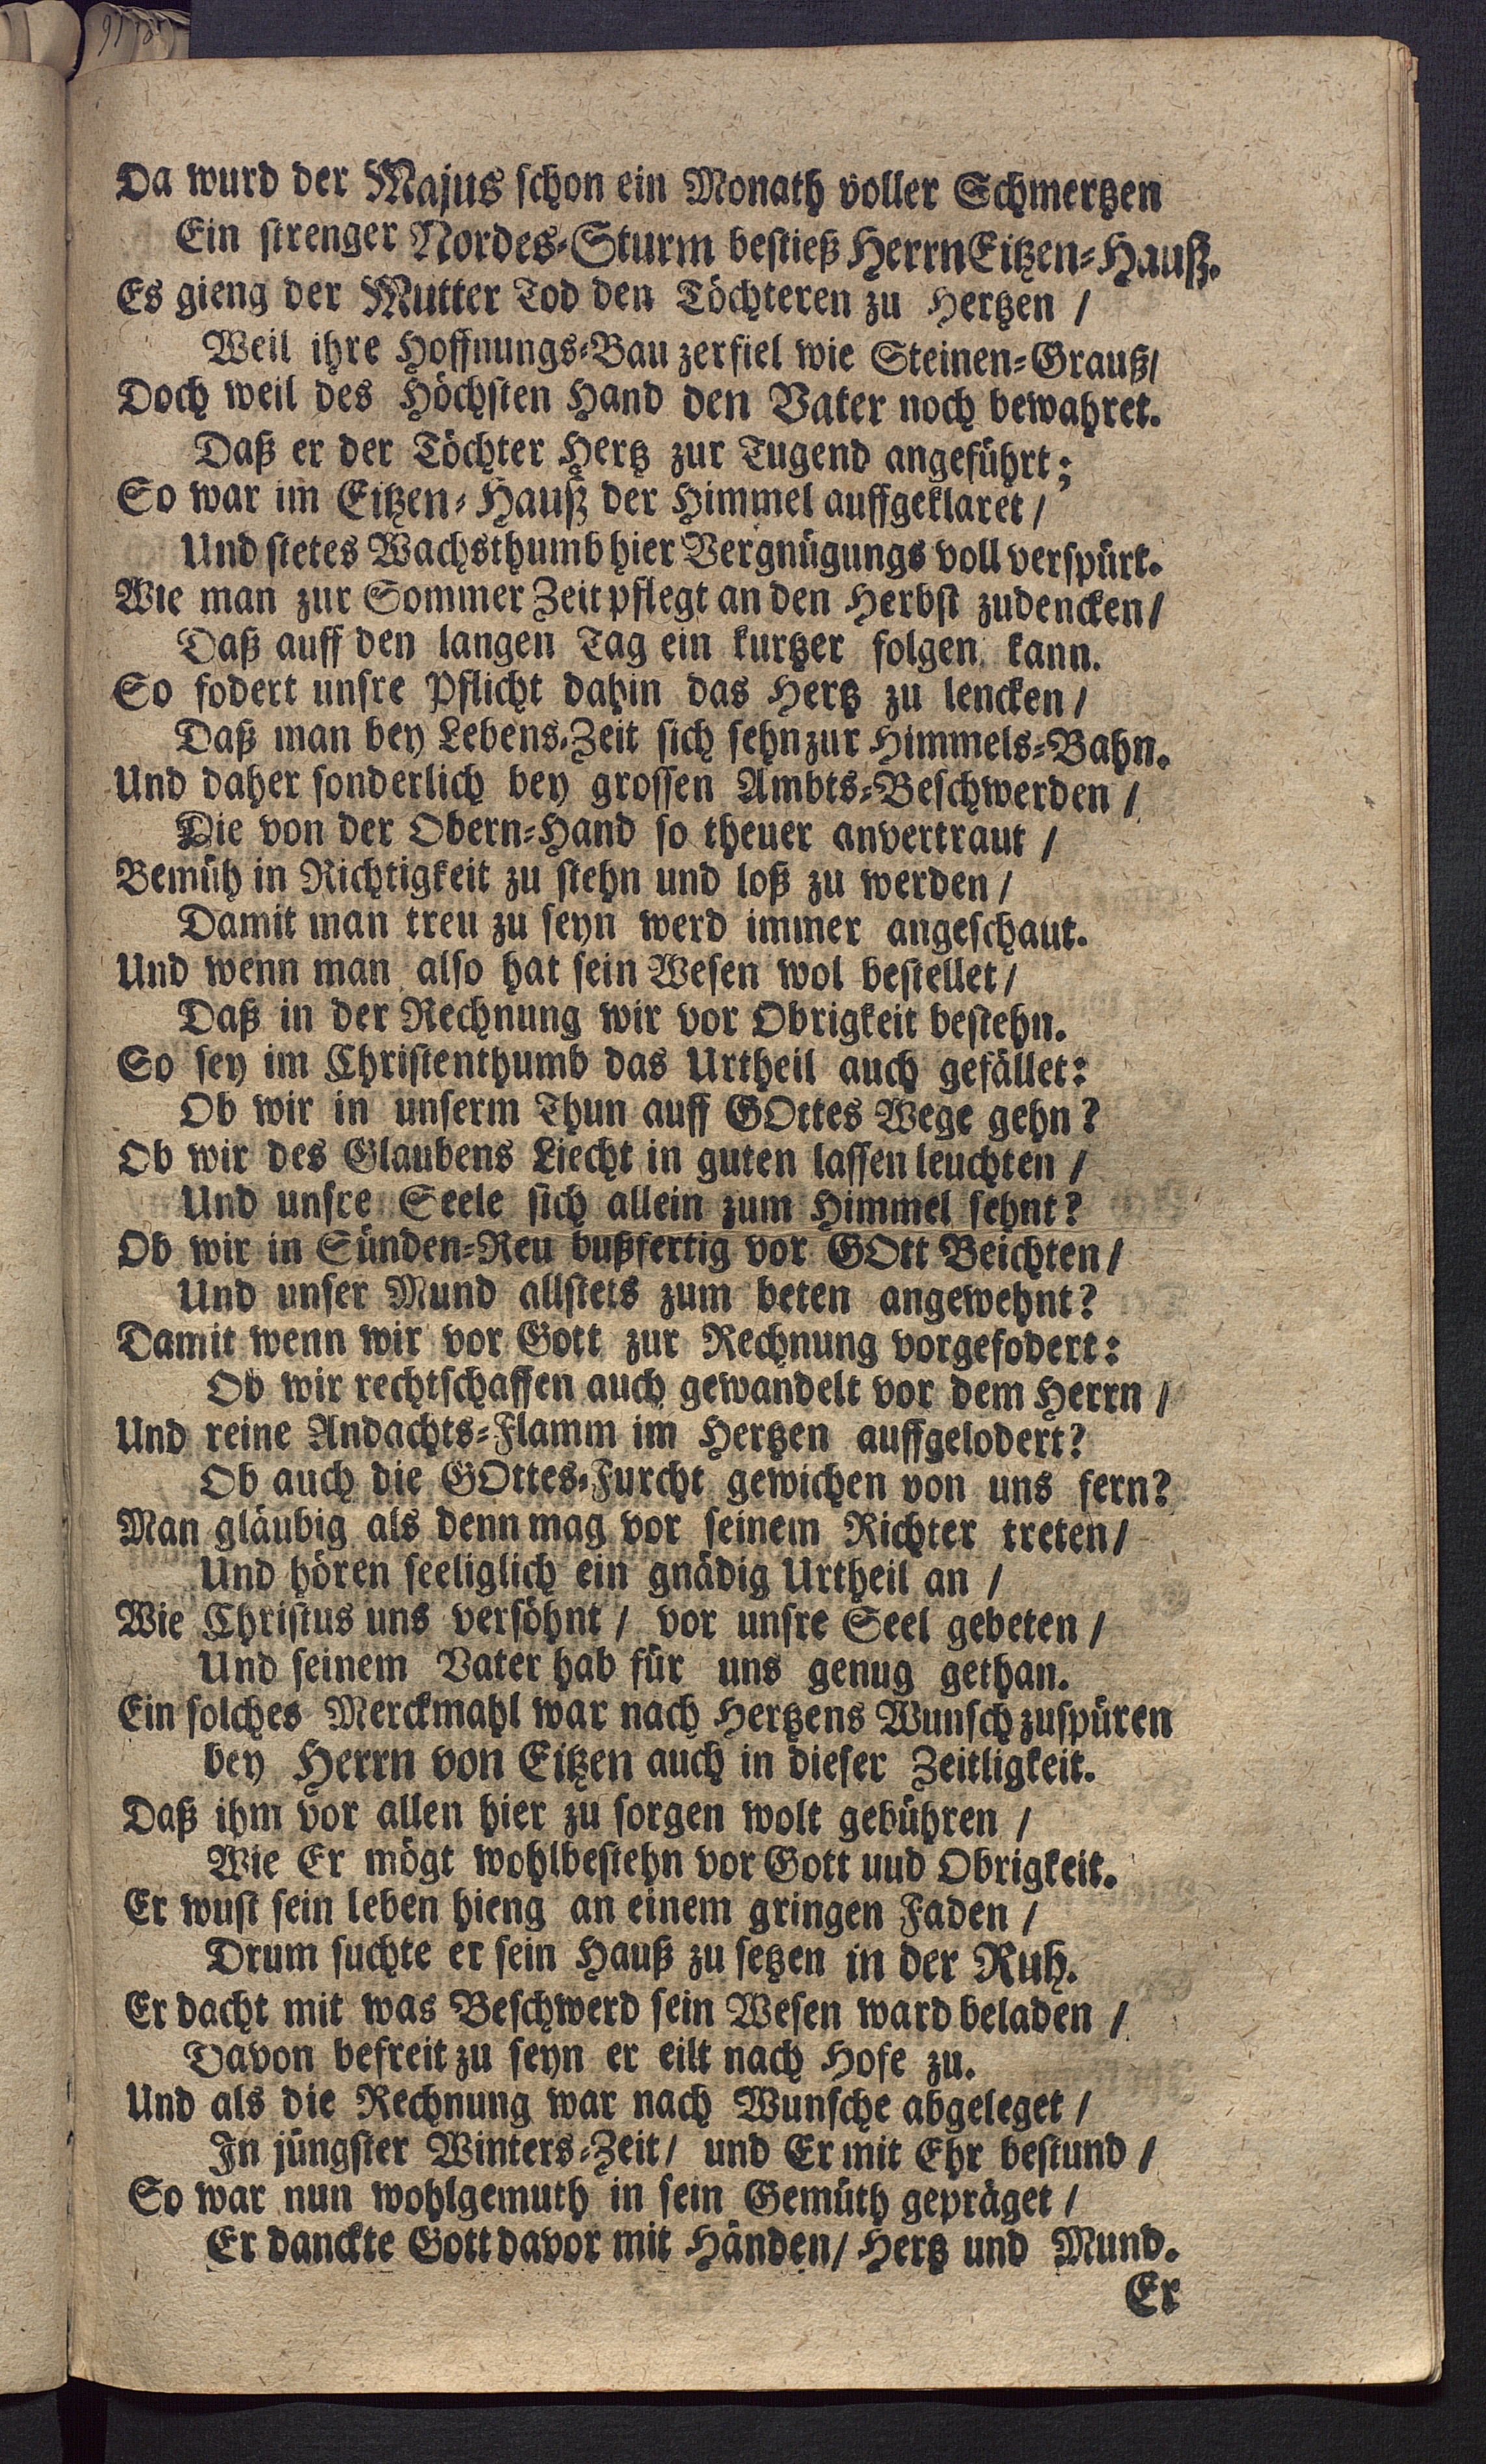 Da wurd der Majus schon ein Monath voller Schmertzen
Ein strenger Nordes-Sturm bestieß Herrn Eitzen-Hauß.
Es gieng der Mutter Tod den Töchteren zu Hertzen /
Weil ihre Hoffnungs-Bau zerfiel wie Steinen-Grauß/
Doch weil des Höchsten Hand den Vater noch bewahret.
Daß er der Töchter Hertz zur Tugend angeführt;
So war im Eitzen-Hauß der Himmel auffgeklaret /
Und stetes Wachsthumb hier Vergnügungs voll verspürt.
Wie man zur Sommer Zeit pflegt an den Herbst zudencken/
Daß auff den langen Tag ein kurtzer folgen kann.
So fodert unsre Pflicht dahin das Hertz zu lencken /
Daß man bey Lebens-Zeit sich sehn zur Himmels-Bahn.
Und daher sonderlich bey grossen Ambts-Beschwerden /
Die von der Obern-Hand so theuer anvertraut /
Bemüh in Richtigkeit zu stehn und loß zu werden /
Damit man treu zu seyn werd immer angeschaut.
Und wenn man also hat sein Wesen wol bestellet/
Daß in der Rechnung wir vor Obrigkeit bestehn.
So sey im Christenthumb das Urtheil auch gefället:
Ob wir in unserm Thun auff GOttes Wege gehn?
Ob wir des Glaubens Liecht in guten lassen leuchten /
Und unsre Seele sich allein zum Himmel sehnt?
Ob wir in Sünden-Reu bußfertig vor GOtt Beichten/
Und unser Mund allstets zum beten angewehnt?
Damit wenn wir vor Gott zur Rechnung vorgefodert:
Ob wir rechtschaffen auch gewandelt vor dem Herrn /
Und reine Andachts-Flamm im Hertzen auffgelodert?
Ob auch die GOttes-Furcht gewichen von uns fern?
Man gläubig als denn mag vor seinem Richter treten/
Und hören seeliglich ein gnädig Urtheil an /
Wie Christus uns versöhnt / vor unsre Seel gebeten /
Und seinem Vater hab für uns genug gethan.
Ein solches Merckmahl war nach Hertzens Wunsch zuspüren
bey Herrn von Eitzen auch in dieser Zeitligkeit.
Daß ihm vor allen hier zu sorgen wolt gebühren /
Wie Er mögt wohlbestehn vor Gott uud Obrigkeit.
Er wust sein leben hieng an einem gringen Faden /
Drum suchte er sein Hauß zu setzen in der Ruh.
Er dacht mit was Beschwerd sein Wesen ward beladen /
Davon befreit zu seyn er eilt nach Hofe zu.
Und als die Rechnung war nach Wunsche abgeleget /
In jüngster Winters-Zeit / und Er mit Ehr bestund /
So war nun wohlgemuth in sein Gemüth gepräget /
Er danckte Gott davor mit Händen/ Hertz und Mund.
Er